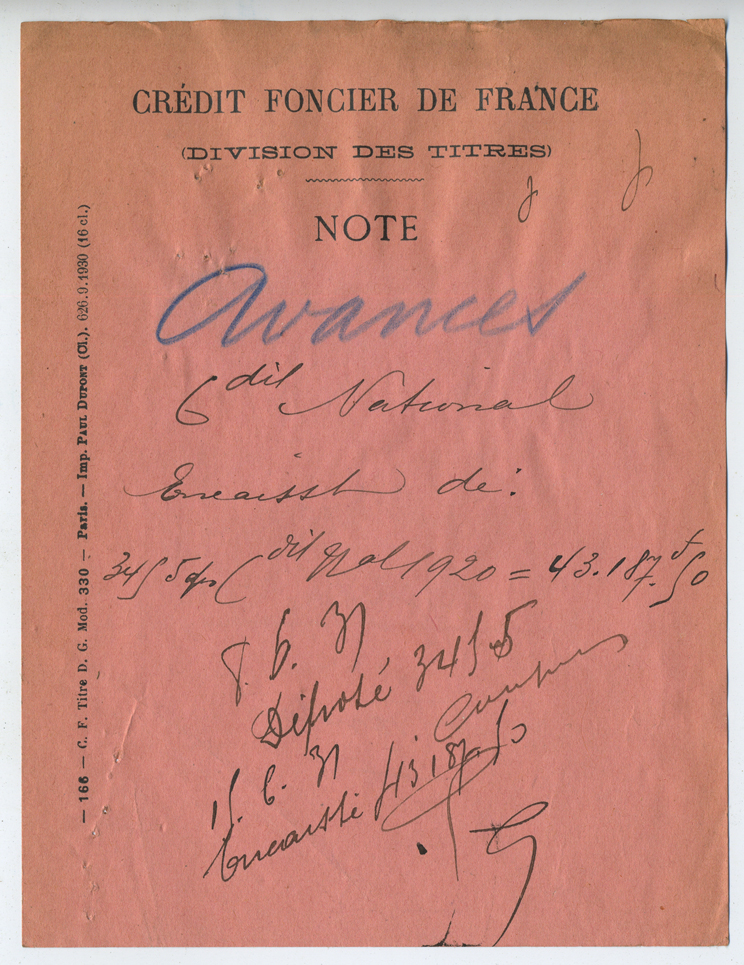 CRÉDIT FONCIER DE FRANCE
(DIVISION DES TITRES)
NOTE
Avances
Cdit National
Encaisst de:
3455 cps Cdit Nal 1920 = 43.187f50
8.6.31
Déposé 3455
Coupons
15.6.31
Encaissé 43187,50
— 166 — C. F. Titre D. G. Mod. 330 — Paris. — Imp. PAUL DUPONT (Cl.). 626.9.1930 (16 cl.)